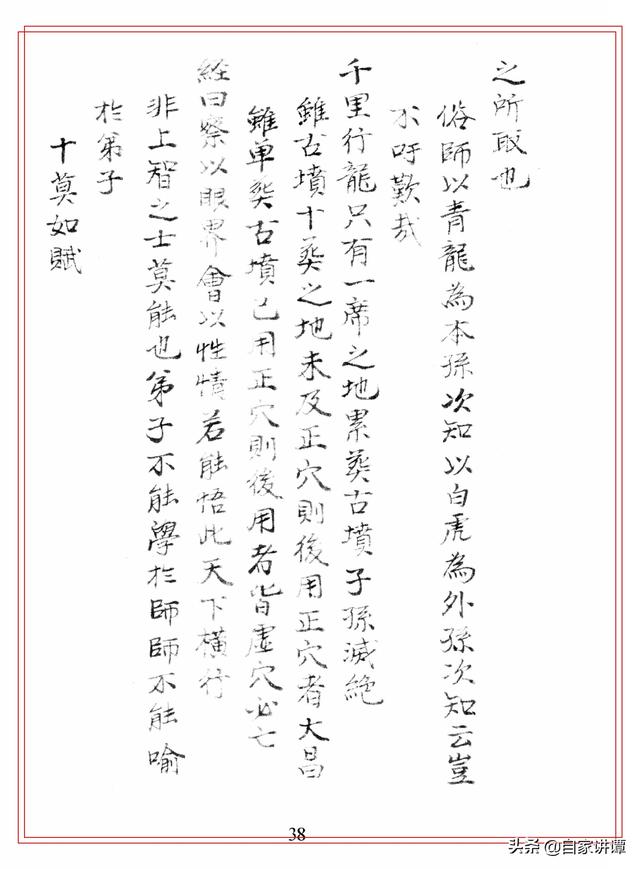 之所取也
俗師以青龍為本孫次知以白虎為外孫次知云豈
不吁歎哉
千里行龍只有一席之地累葬古墳子孫滅絶
雖古墳十葬之地未及正穴則後用正穴者大昌
雖单葬古墳已用正穴則後用者皆虛穴必亡
経曰察以眼界會以性情若能悟此天下橫行
非上智之士莫能也弟子不能學於師師不能喻
於弟子
十莫如賦
38
头条 @自家讲谭